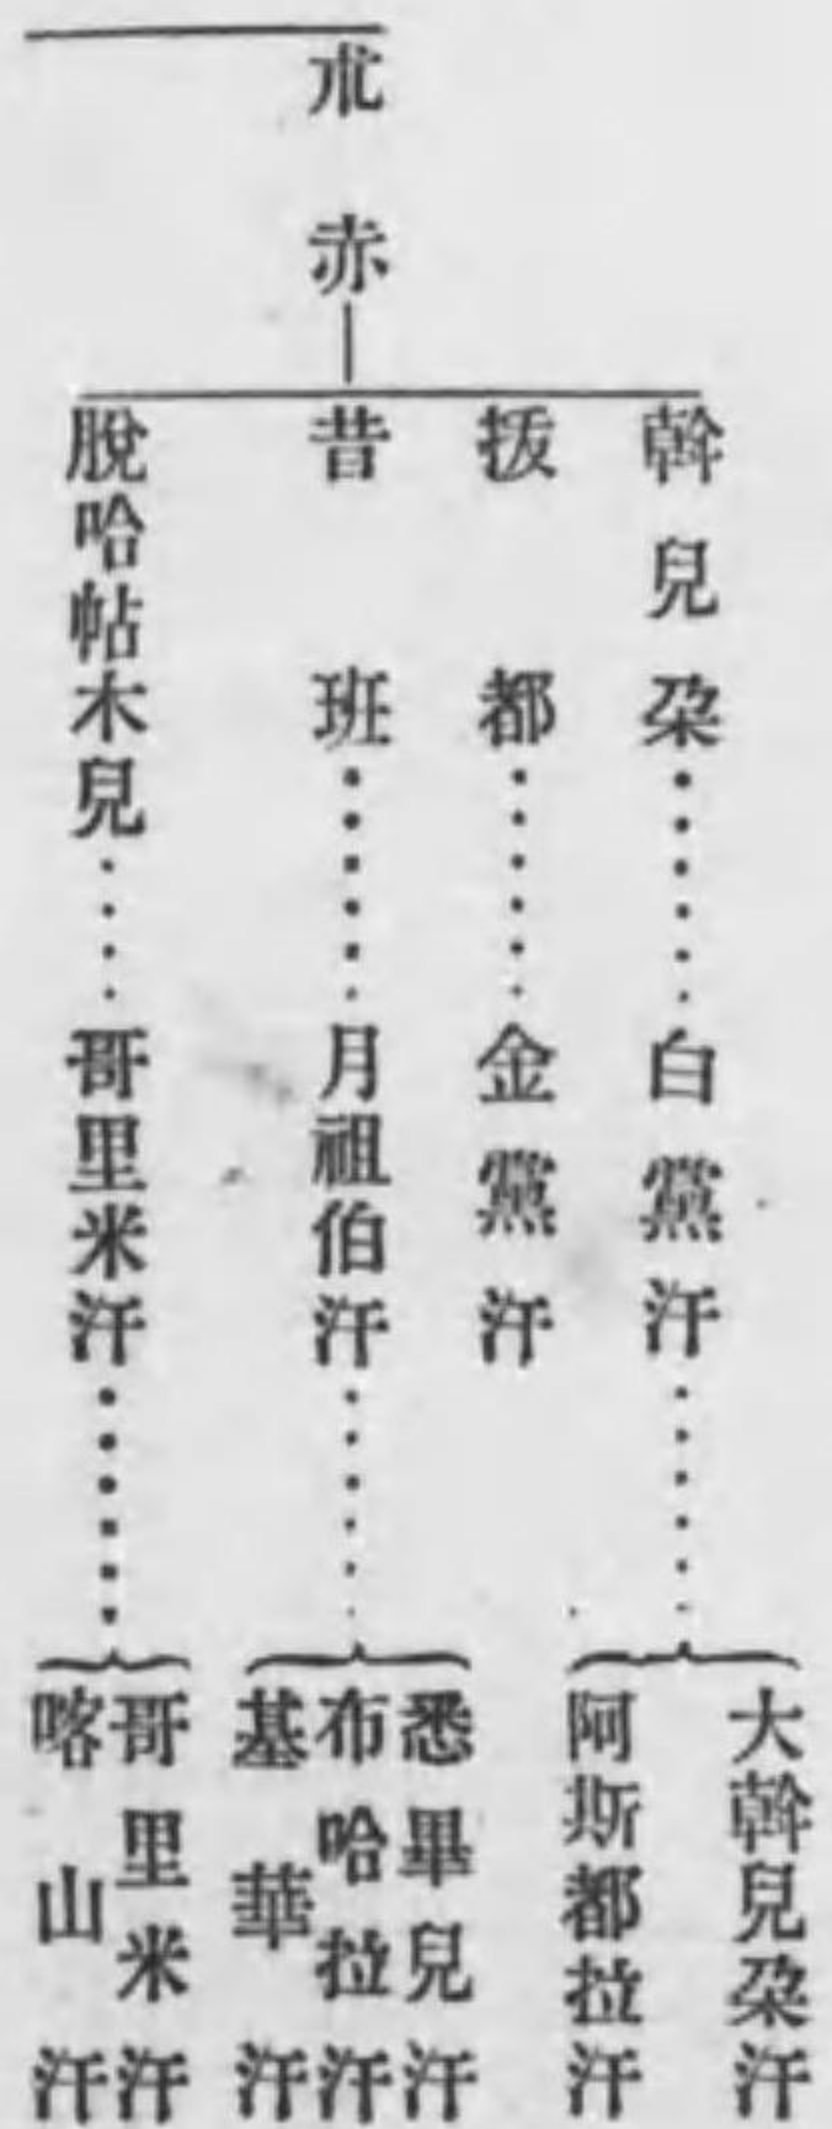 朮赤
斡兒朶……白黨汗……
大斡兒朶汗
阿斯都拉汗
拔都……金黨汗
昔班……月祖伯汗……
悉畢兒汗
布哈拉汗
基華汗
脫哈帖木兒……哥里米汗……
哥里米汗
喀山汗